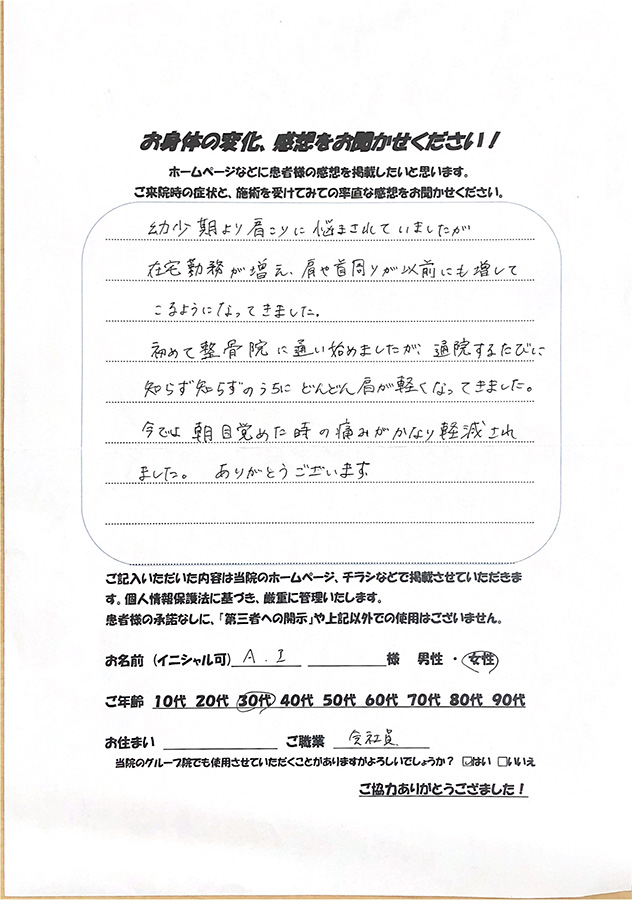 お身体の変化、感想をお聞かせください！
ホームページなどに患者様の感想を掲載したいと思います。
ご来院時の症状と、施術を受けてみての率直な感想をお聞かせください。
幼少期より肩こりに悩まされていましたが
在宅勤務が増え、肩や首周りが以前にも増して
こるようになってきました。
初めて整骨院に通い始めましたが、通院するたびに
知らず知らずのうちにどんどん肩が軽くなってきました。
今では朝目覚めた時の痛みがかなり軽減され
ました。 ありがとうございます
ご記入いただいた内容は当院のホームページ、チラシなどで掲載させていただきま
す。個人情報保護法に基づき、厳重に管理いたします。
患者様の承諾なしに、「第三者への開示」や上記以外での使用はございません。
お名前（イニシャル可） A . I 様 男性 ・ 女性
ご年齢 10代 20代 30代 40代 50代 60代 70代 80代 90代
お住まい ご職業 会社員
当院のグループ院でも使用させていただくことがありますがよろしいでしょうか？ ☑はい □いいえ
ご協力ありがとうござました！